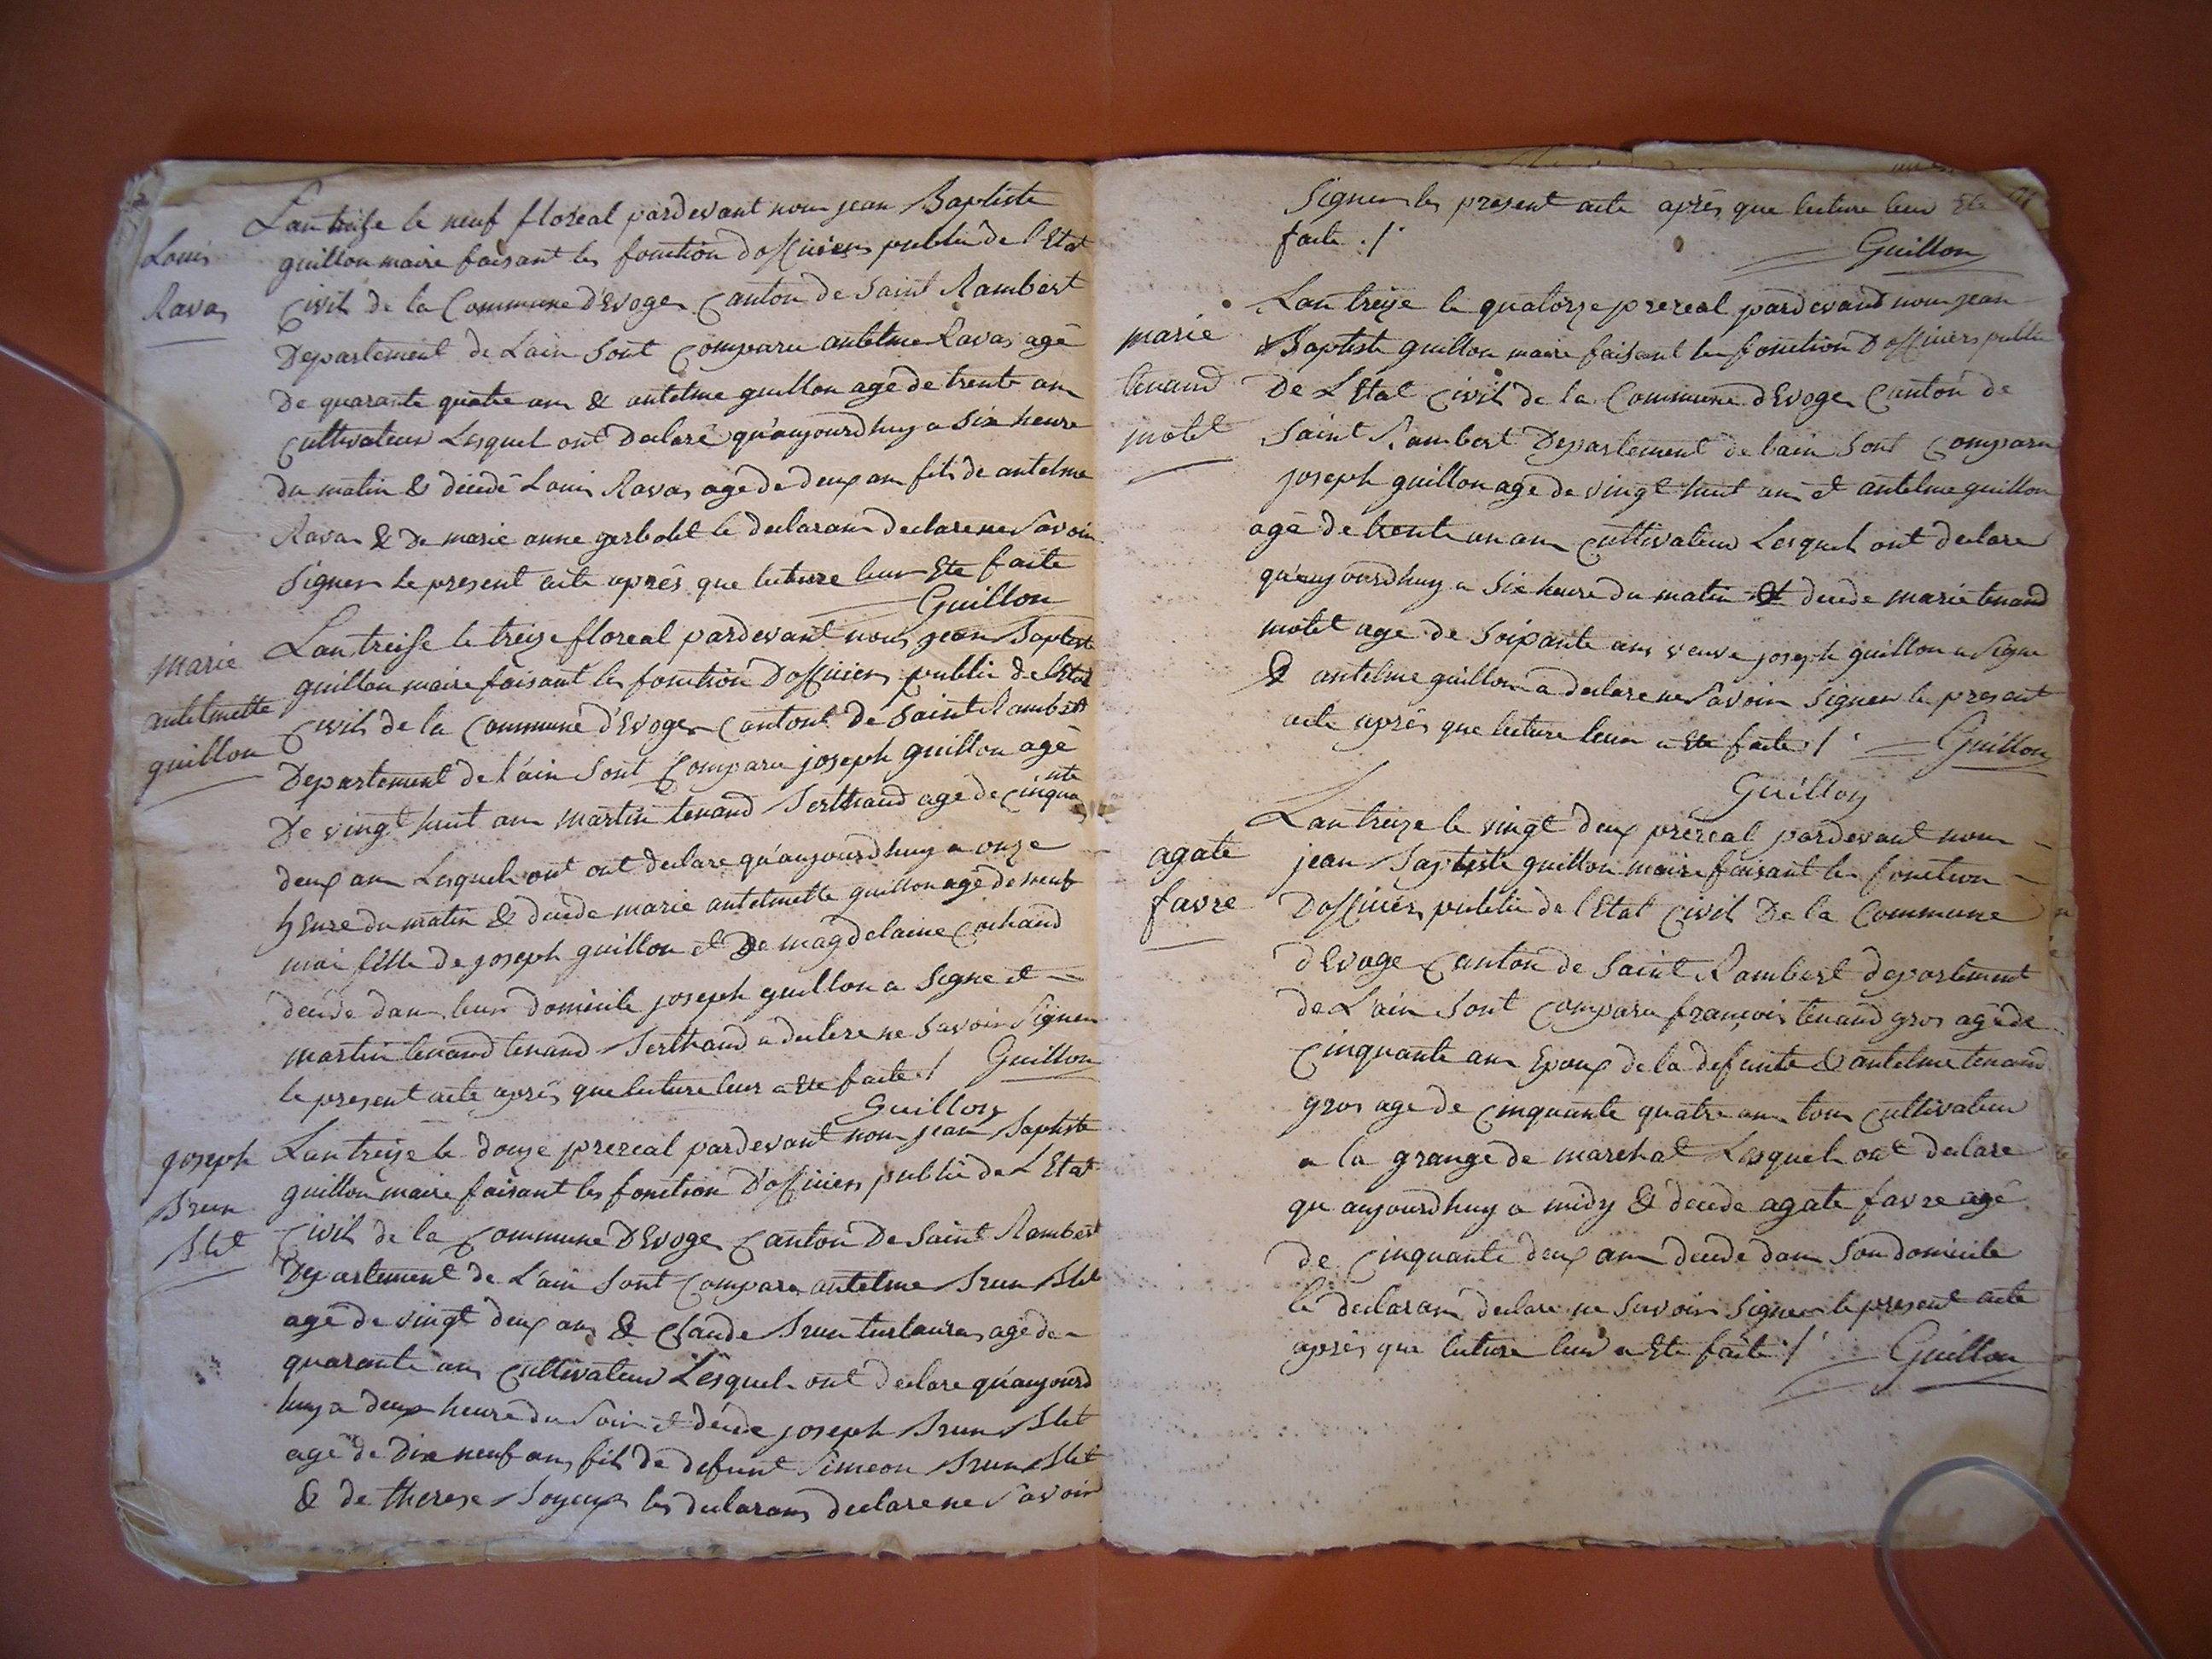 Louis
Ravas
Lan treise le neuf floreal pardevant nous jean Baptiste
guillon maire faisant les fonction dofficiers public de l'Etat
Civil de la Commune d'Evoges Canton de Saint Rambert
Departement de Lain sont Comparu antelme Ravas agé
De quarante quatre ans & antelme guillon agé de trente ans
Cultivateur Lesquel ont Declaré qu'aujourdhuy a six heure
du matin & décédé Louis Ravas agé de deux ans fils de antelme
Ravas & de marie anne gerbolet le declarans declare ne Savoir
Signer le present acte après que lecture leur Ete faite
Guillon
marie
antelmette
guillon
Lan treise le treize floreal pardevant nous jean Baptiste
guillon maire faisant les fonction Dofficiers public de l'Etat
Civil de la Commune d'Evoges Canton de Saint Rambert
Departement de l'ain Sont Comparu joseph guillon agé
De vingt huit ans martin tenand Berthaud agé de cinquante
deux ans Lesquels ont ont declare qu'aujourdhuy a onze
heure du matin & decede marie antelmette guillon agé de neuf
moi fille de joseph guillon et De magdelaine Cochand
decede dans leur domicile joseph guillon a Signe et
martin tenand tenand Berthaud a declere ne Savoir Signer
le present acte après que lecture leur a Ete faite ./. Guillon
Guillon
joseph
Brun
Blet
Lan treize le douze prereal pardevant nous jean Baptiste
guillon maire faisant les fonction D'officiers public de L'Etat
Civil de la Commune D'Evoges Canton De Saint Rambert
Departement de L'ain Sont Comparu antelme Brun Blet
agé de vingt deux ans & Claude Brun agé de
quarante ans Cultivateur Lesquels ont declare qu'aujourd
huy a deux heure du Soir et décede joseph Brun Blet
agé de Dix neuf ans fils de defunt Simeon Brun Blet
& de therese Soyeux les declarans declare ne Savoir
Signer les present acte après que lecture leur Ete
faite ./.
Guillon
marie
tenand
motet
Lan treize le quatorze prereal pardevand nous jean
Baptiste guillon maire faisant les fonction Dofficiers public
De L'Etat Civil de la Commune dEvoges Canton de
Saint Rambert Departement de lain Sont Comparu
joseph guillon agé de vingt huit ans et antelme guillon
agé de trente un ans Cultivateur Lesquels ont declare
qu'aujourdhuy a Six heure du matin & decede marie tenand
motet age de Soixante ans veuve joseph guillon a Signe
& antelme guillon a declare ne Savoir Signer le present
acte après que lecture leur a Ete faite ./. Guillon
Guillon
agate
favre
Lan treize le vingt deux prereal pardevant nous
jean Baptiste guillon maire faisant les fonction
Dofficiers public de l'Etat Civil De la Commune
d'Evoge Canton de Saint Rambert departement
de L'ain Sont Comparu françois tenand gros agé de
Cinquante ans Epoux de la defunte & antelme tenand
gros age de Cinquante quatre ans tous Cultivateur
a la grange de marchat Lesquels ont declare
qu aujourdhuy a midy & decede agate favre agé
de Cinquante deux ans decede dans Son domicile
le declarans declare ne Savoir Signer le present acte
après que lecture leur a Ete faite ./. Guillon